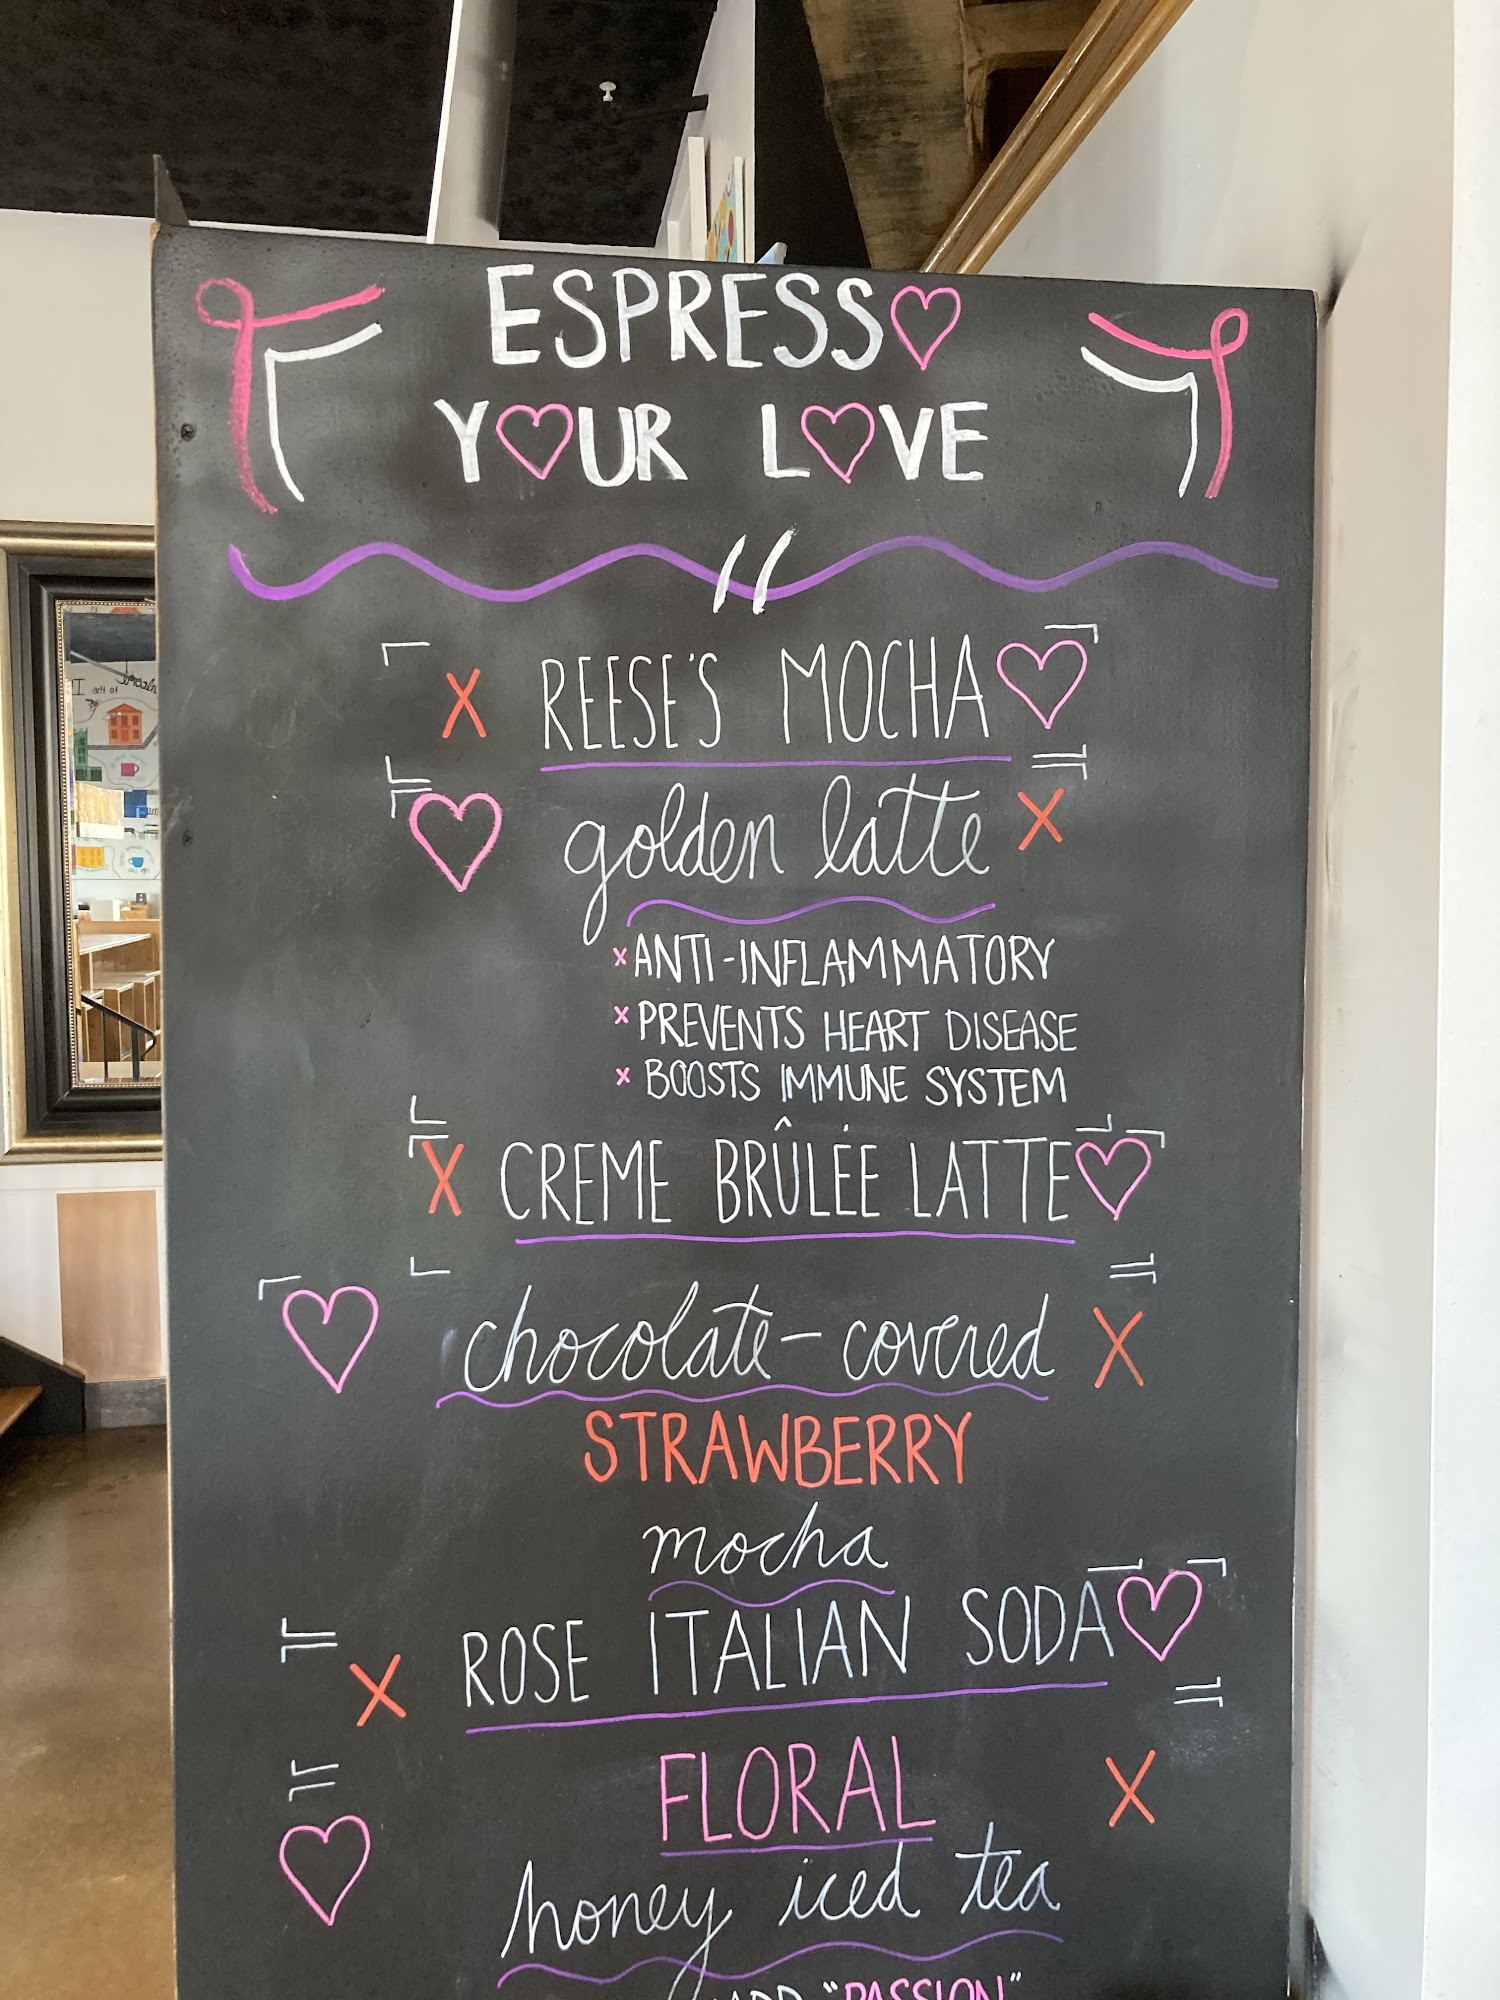 ESPRESS♡
Y♡UR L♡VE
X REESE'S MOCHA ♡
♡ golden latte X
x ANTI-INFLAMMATORY
x PREVENTS HEART DISEASE
x BOOSTS IMMUNE SYSTEM
X CREME BRÛLÉE LATTE ♡
♡ chocolate-covered X
STRAWBERRY
mocha
X ROSE ITALIAN SODA ♡
FLORAL X
♡ honey iced tea
ADD "PASSION"